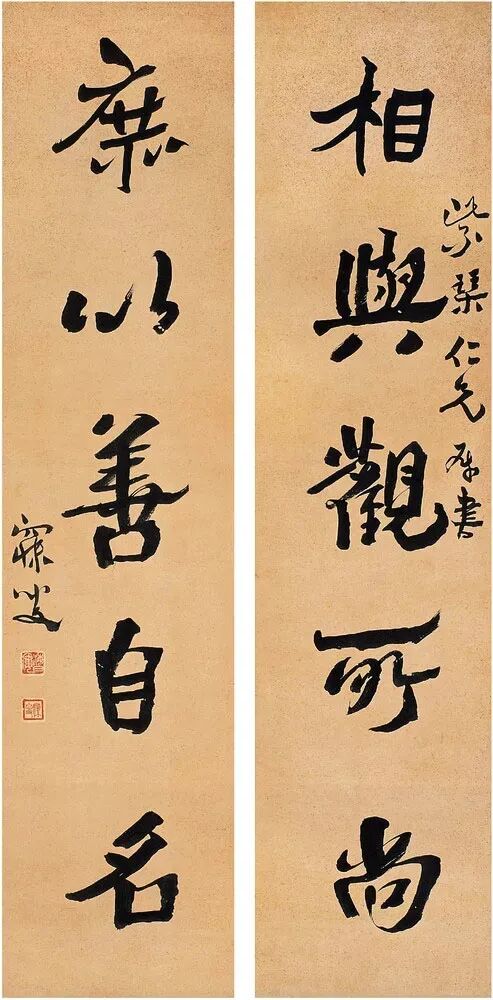 相與觀所尚
紫琹仁兄屬書
庶以善自名
寐叟